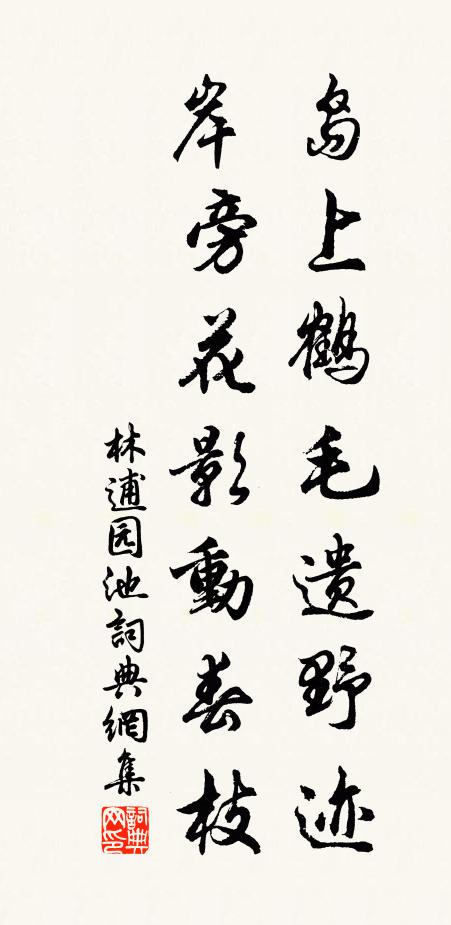 岛上鹤毛遗野迹
岸旁花影動春枝
林逋园池詞典網集
詞典网印